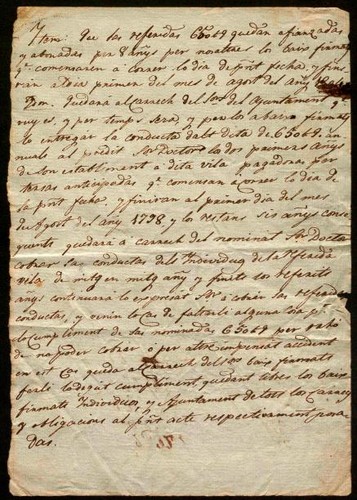 Item: Que las referidas 650 lls quedan afianzadas
y abonadas per 8 añys per nosaltres los baix firmats
q.e comensaren a correr lo dia de fecha, y fini
ran al dia primer del mes de agost del añy
Item. Quedará a carrech del Sors del Ajuntament q.
vuy es, y per temps sera, y per los abaix firmats
lo entregar la conducta de las ditas 650 lls
nuals al predit Sor Doctor los dos primers añys
de son establiment a dita vila pagadoras per
trasas anticipadas q.e comensan a correr lo dia de
la pñt fecha, y finiran al primer dia del mes
de Agost del añy 1798, y lo restans sis añys conse
quents quedará a carrech del nominat Sor Docto
cobrar las conductas dels Individuos de la
vila de mitg en mitg añy, y finits los referits
añys continuará lo expresat Sor a cobrar las referidas
conductas, y venin lo cas de faltarli alguna cosa p.
lo cumpliment de las nominadas 650 lls per raho
de no poder cobrar ó per altre impensat accident
en est cas queda a carrech dels baix firmats
ferli lo degut cumpliment quedant
firmats Individuos, y Ajuntament de tots los Carrechs
y obligacions al pñt acte respectivament posa
das.